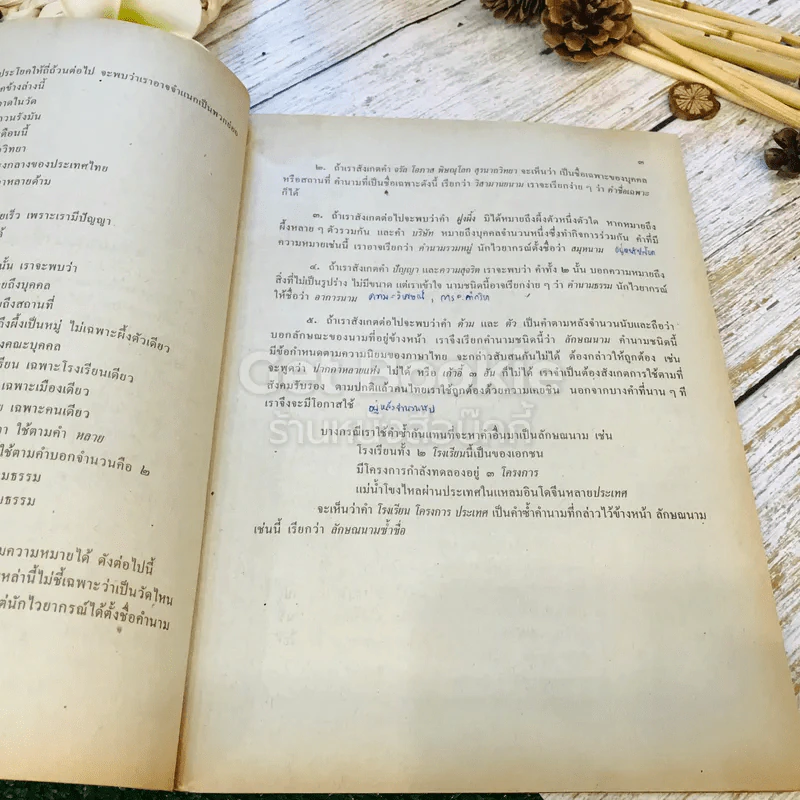 ประโยคให้ถี่ถ้วนต่อไป จะพบว่าเราอาจจำแนกเป็นพวกย่อย
ข้างล่างนี้
าดในวัด
กวนรังมัน
เดือนนี้
วิทยา
งกลางของประเทศไทย
าหลายด้าม
ยเร็ว เพราะเรามีปัญญา
ได้
นั้น เราจะพบว่า
ายถึงบุคคล
ยถึงสถานที่
ถึงผึ้งเป็นหมู่ ไม่เฉพาะผึ้งตัวเดียว
งคณะบุคคล
รียน เฉพาะโรงเรียนเดียว
เฉพาะเมืองเดียว
ย เฉพาะคนเดียว
า ใช้ตามคำ หลาย
ใช้ตามคำบอกจำนวนคือ ๒
มธรรม
มธรรม
มความหมายได้ ดังต่อไปนี้
เหล่านี้ไม่ชี้เฉพาะว่าเป็นวัดไหน
ต่นักไวยากรณ์ได้ตั้งชื่อคำนาม
๓
๒. ถ้าเราสังเกตคำ จรัล โอภาส พิษณุโลก สุรนารีวิทยา จะเห็นว่า เป็นชื่อเฉพาะของบุคคล
หรือสถานที่ คำนามที่เป็นชื่อเฉพาะดังนี้ เรียกว่า วิสามานยนาม เราจะเรียกง่าย ๆ ว่า คำชื่อเฉพาะ
ก็ได้
๓. ถ้าเราสังเกตต่อไปจะพบว่าคำ ฝูงผึ้ง มิได้หมายถึงผึ้งตัวหนึ่งตัวใด หากหมายถึง
ผึ้งหลาย ๆ ตัวรวมกัน และคำ บริษัท หมายถึงบุคคลจำนวนหนึ่งซึ่งทำกิจการร่วมกัน คำที่มี
ความหมายเช่นนี้ เราอาจเรียกว่า คำนามรวมหมู่ นักไวยากรณ์ตั้งชื่อว่า สมุหนาม
๔. ถ้าเราสังเกตคำ ปัญญา และความสุจริต เราจะพบว่า คำทั้ง ๒ นั้น บอกความหมายถึง
สิ่งที่ไม่เป็นรูปร่าง ไม่มีขนาด แต่เราเข้าใจ นามชนิดนี้อาจเรียกง่าย ๆ ว่า คำนามธรรม นักไวยากรณ์
ให้ชื่อว่า อาการนาม
๕. ถ้าเราสังเกตต่อไปจะพบว่าคำ ด้าม และ ตัว เป็นคำตามหลังจำนวนนับและถือว่า
บอกลักษณะของนามที่อยู่ข้างหน้า เราจึงเรียกคำนามชนิดนี้ว่า ลักษณนาม คำนามชนิดนี้
มีข้อกำหนดตามความนิยมของภาษาไทย จะกล่าวสับสนกันไม่ได้ ต้องกล่าวให้ถูกต้อง เช่น
จะพูดว่า ปากกาหลายแท่ง ไม่ได้ หรือ เก้าอี้ ๓ อัน ก็ไม่ได้ เราจำเป็นต้องสังเกตการใช้ตามที่
สังคมรับรอง ตามปกติแล้วคนไทยเราใช้ถูกต้องด้วยความเคยชิน นอกจากบางคำที่นาน ๆ ที
เราจึงจะมีโอกาสใช้ อยู่หลังจำนวนนับ
บางกรณีเราใช้คำซ้ำกันแทนที่จะหาคำอื่นมาเป็นลักษณนาม เช่น
โรงเรียนทั้ง ๒ โรงเรียนนี้เป็นของเอกชน
มีโครงการกำลังทดลองอยู่ ๓ โครงการ
แม่น้ำโขงไหลผ่านประเทศในแหลมอินโดจีนหลายประเทศ
จะเห็นว่าคำ โรงเรียน โครงการ ประเทศ เป็นคำซ้ำคำนามที่กล่าวไว้ข้างหน้า ลักษณนาม
เช่นนี้ เรียกว่า ลักษณนามซ้ำชื่อ
ร้านหนังสือบุ๊คกี้